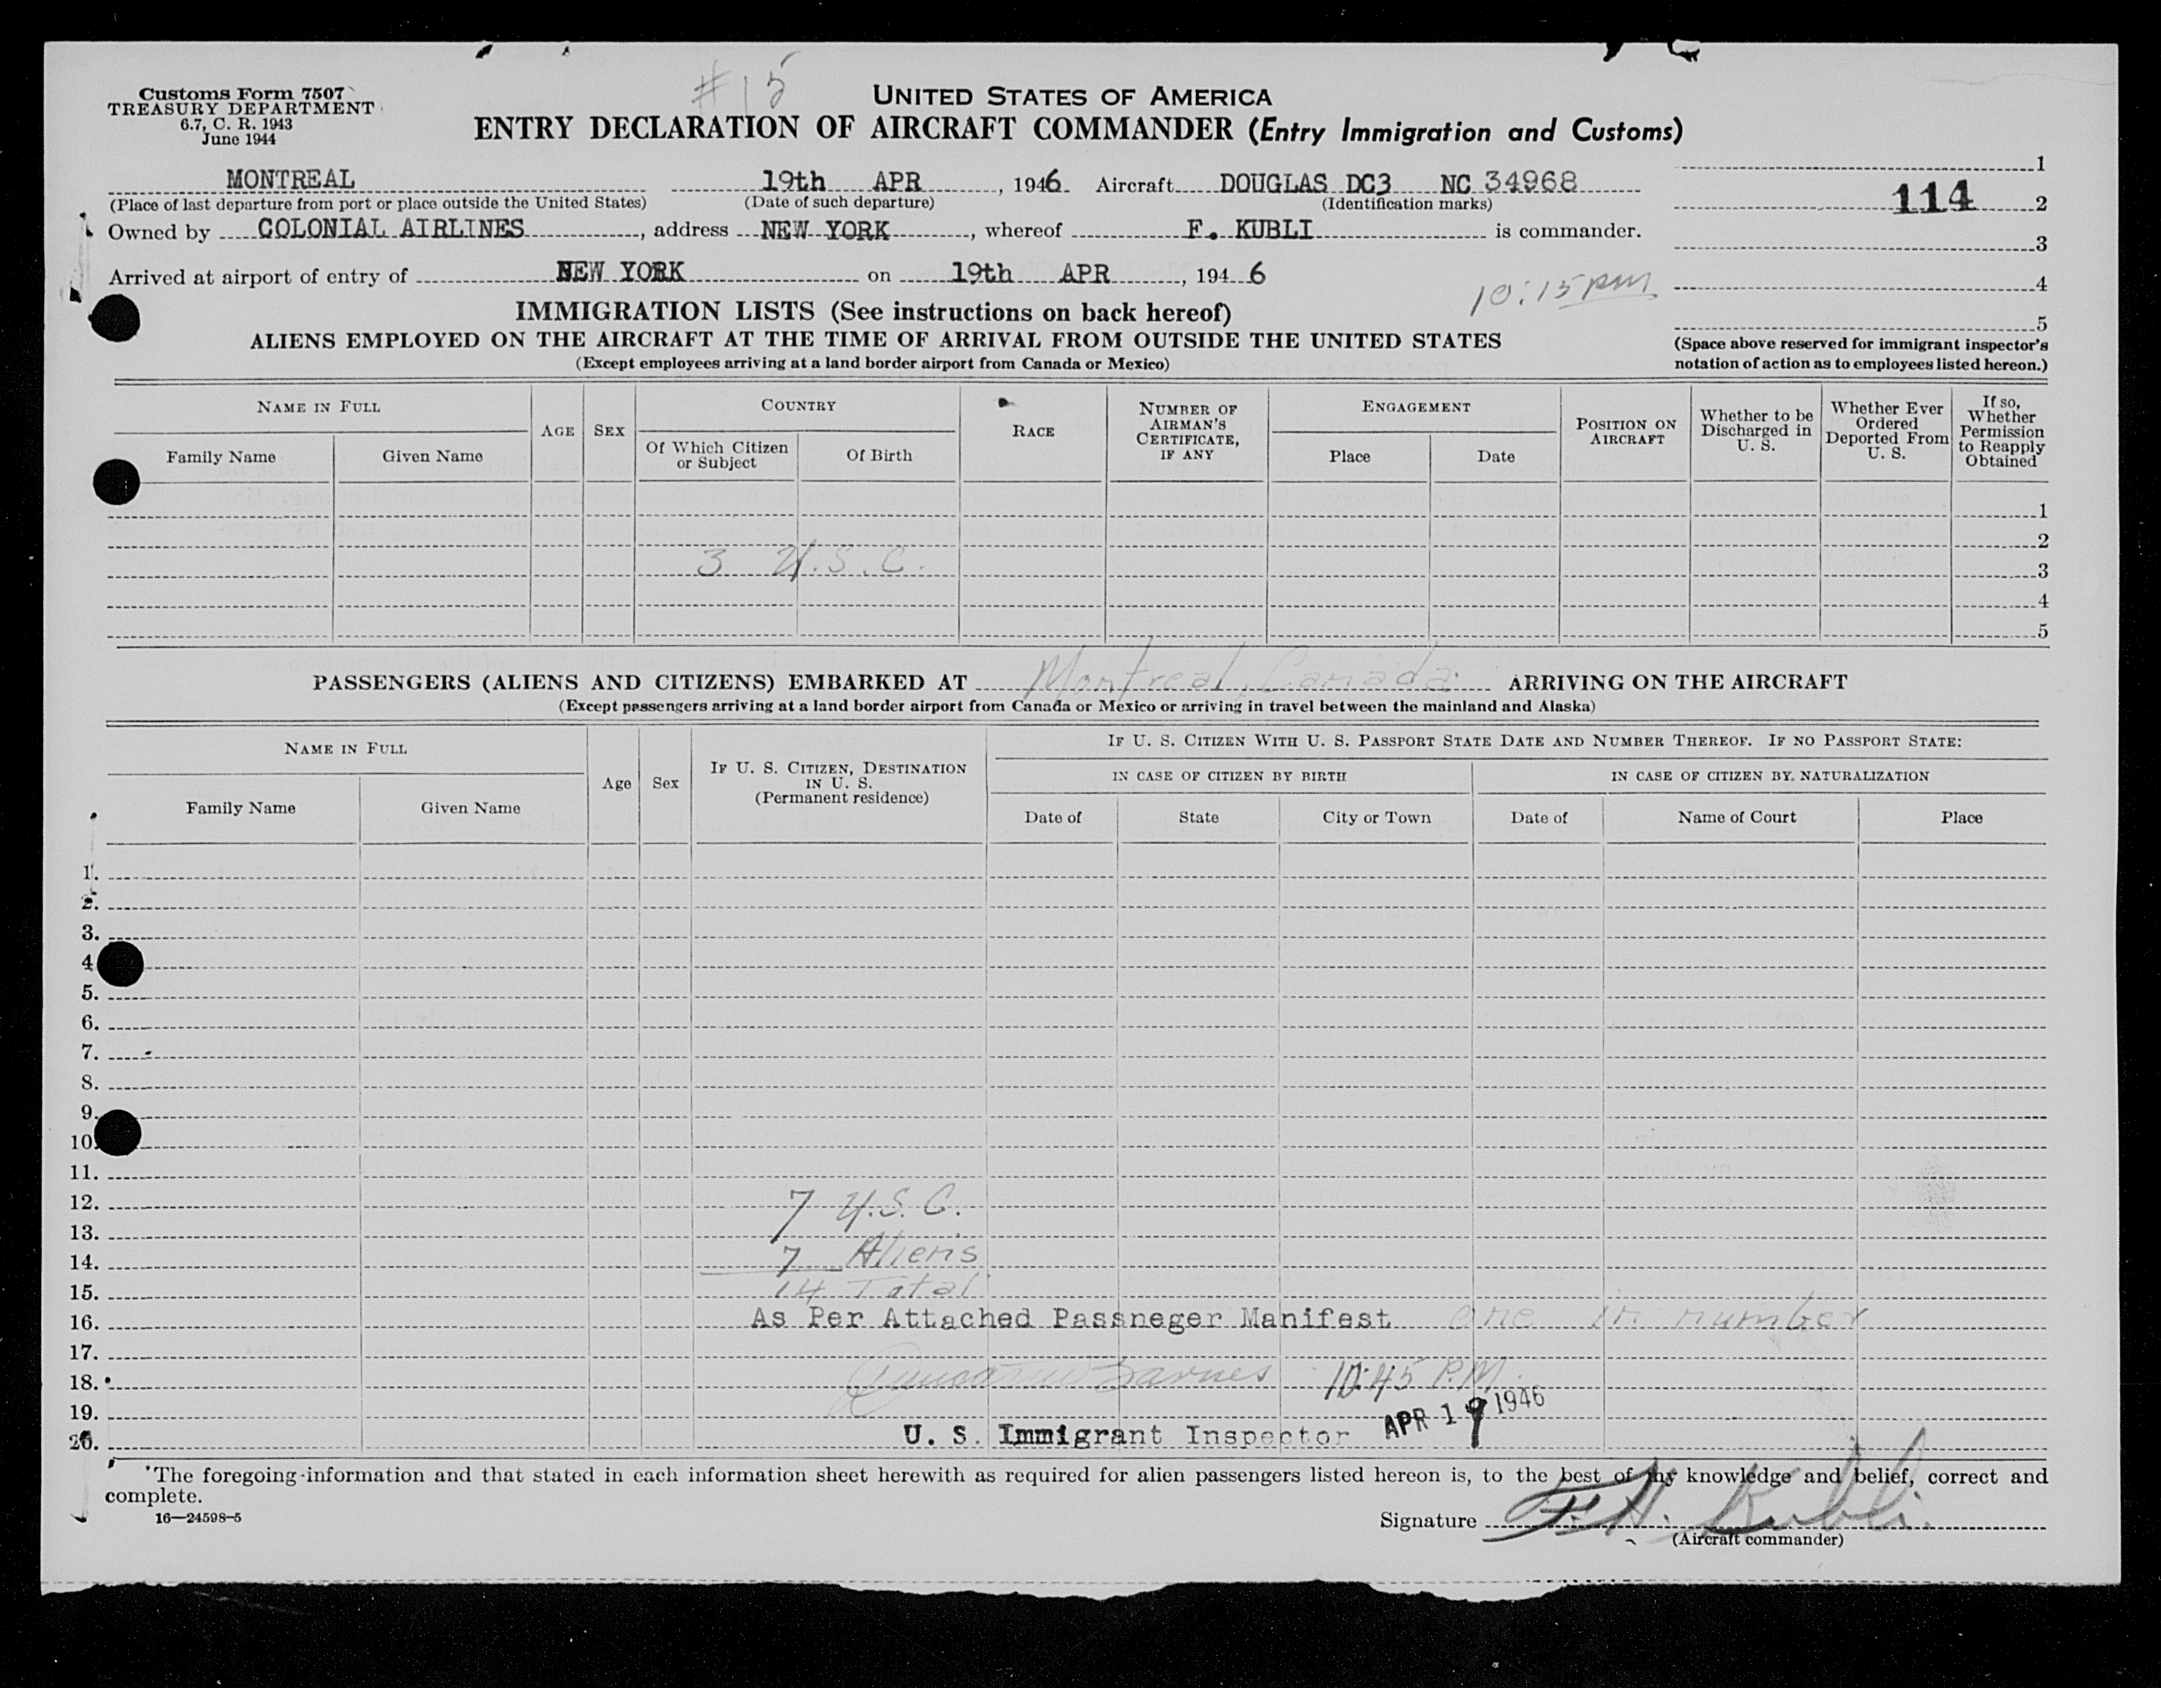 Customs Form 7507
TREASURY DEPARTMENT
6.7, C. R. 1943
June 1944
#15
UNITED STATES OF AMERICA
ENTRY DECLARATION OF AIRCRAFT COMMANDER (Entry Immigration and Customs)
MONTREAL 19th APR, 1946 Aircraft DOUGLAS DC3 NC 34968
(Place of last departure from port or place outside the United States) (Date of such departure) (Identification marks)
Owned by COLONIAL AIRLINES, address NEW YORK, whereof F. KUBLI is commander.
Arrived at airport of entry of NEW YORK on 19th APR, 194 6
1
114 2
3
10:15 pm 4
5
(Space above reserved for immigrant inspector's
notation of action as to employees listed hereon.)
IMMIGRATION LISTS (See instructions on back hereof)
ALIENS EMPLOYED ON THE AIRCRAFT AT THE TIME OF ARRIVAL FROM OUTSIDE THE UNITED STATES
(Except employees arriving at a land border airport from Canada or Mexico)
NAME IN FULL
Family Name Given Name
AGE
SEX
COUNTRY
Of Which Citizen
or Subject
Of Birth
RACE
NUMBER OF
AIRMAN'S
CERTIFICATE,
IF ANY
ENGAGEMENT
Place Date
POSITION ON
AIRCRAFT
Whether to be
Discharged in
U. S.
Whether Ever
Ordered
Deported From
U. S.
If so,
Whether
Permission
to Reapply
Obtained
1
2
3 U.S.C. 3
4
5
PASSENGERS (ALIENS AND CITIZENS) EMBARKED AT Montreal, Canada ARRIVING ON THE AIRCRAFT
(Except passengers arriving at a land border airport from Canada or Mexico or arriving in travel between the mainland and Alaska)
NAME IN FULL
Family Name Given Name
Age
Sex
IF U. S. CITIZEN, DESTINATION
IN U. S.
(Permanent residence)
IF U. S. CITIZEN WITH U. S. PASSPORT STATE DATE AND NUMBER THEREOF. IF NO PASSPORT STATE:
IN CASE OF CITIZEN BY BIRTH IN CASE OF CITIZEN BY NATURALIZATION
Date of State City or Town Date of Name of Court Place
1.
2.
3.
4
5.
6.
7.
8.
9.
10.
11.
12. 7 U.S.C.
13.
14. 7 Aliens
15. 14 Total
16. As Per Attached Passneger Manifest one in number
17.
18. Barnes 10:45 P.M.
19. APR 19 1946
20. U. S. Immigrant Inspector
The foregoing information and that stated in each information sheet herewith as required for alien passengers listed hereon is, to the best of my knowledge and belief, correct and
complete.
16—24598-5
Signature F. H. Kubli
(Aircraft commander)